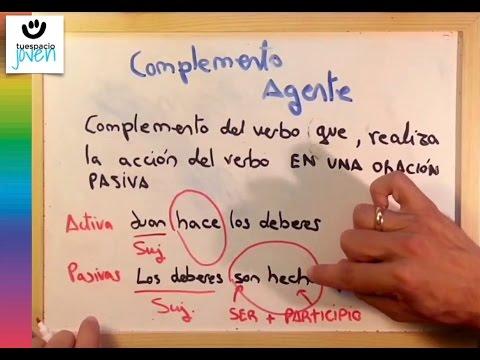 tuespacio
joven
Complemento
Agente
Complemento del verbo que, realiza
la acción del verbo EN UNA ORACIÓN
PASIVA
Activa Juan hace los deberes
Suj
Pasivas Los deberes son hech
Suj.
SER + PARTICIPIO